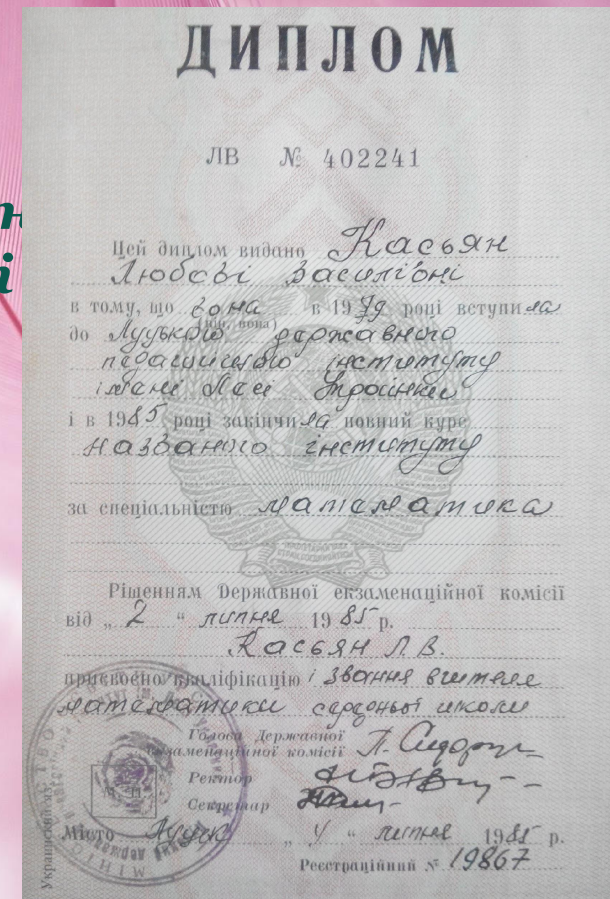 ДИПЛОМ
ЛВ № 402241
Цей диплом видано Касьян
Любові Василівні
в тому, що вона в 1979 році вступила
(він, вона)
до Луцького державного
педагогічного інституту
імені Лесі Українки
і в 1985 році закінчила повний курс
названого інституту
за спеціальністю математика
Рішенням Державної екзаменаційної комісії
від „ 2 “ липня 1985 р.
Касьян Л. В.
присвоєно кваліфікацію і звання вчителя
математики середньої школи
Голова Державної
екзаменаційної комісії
Ректор
Секретар
Місто Луцьк „ 4 “ липня 1985 р.
Реєстраційний № 19867